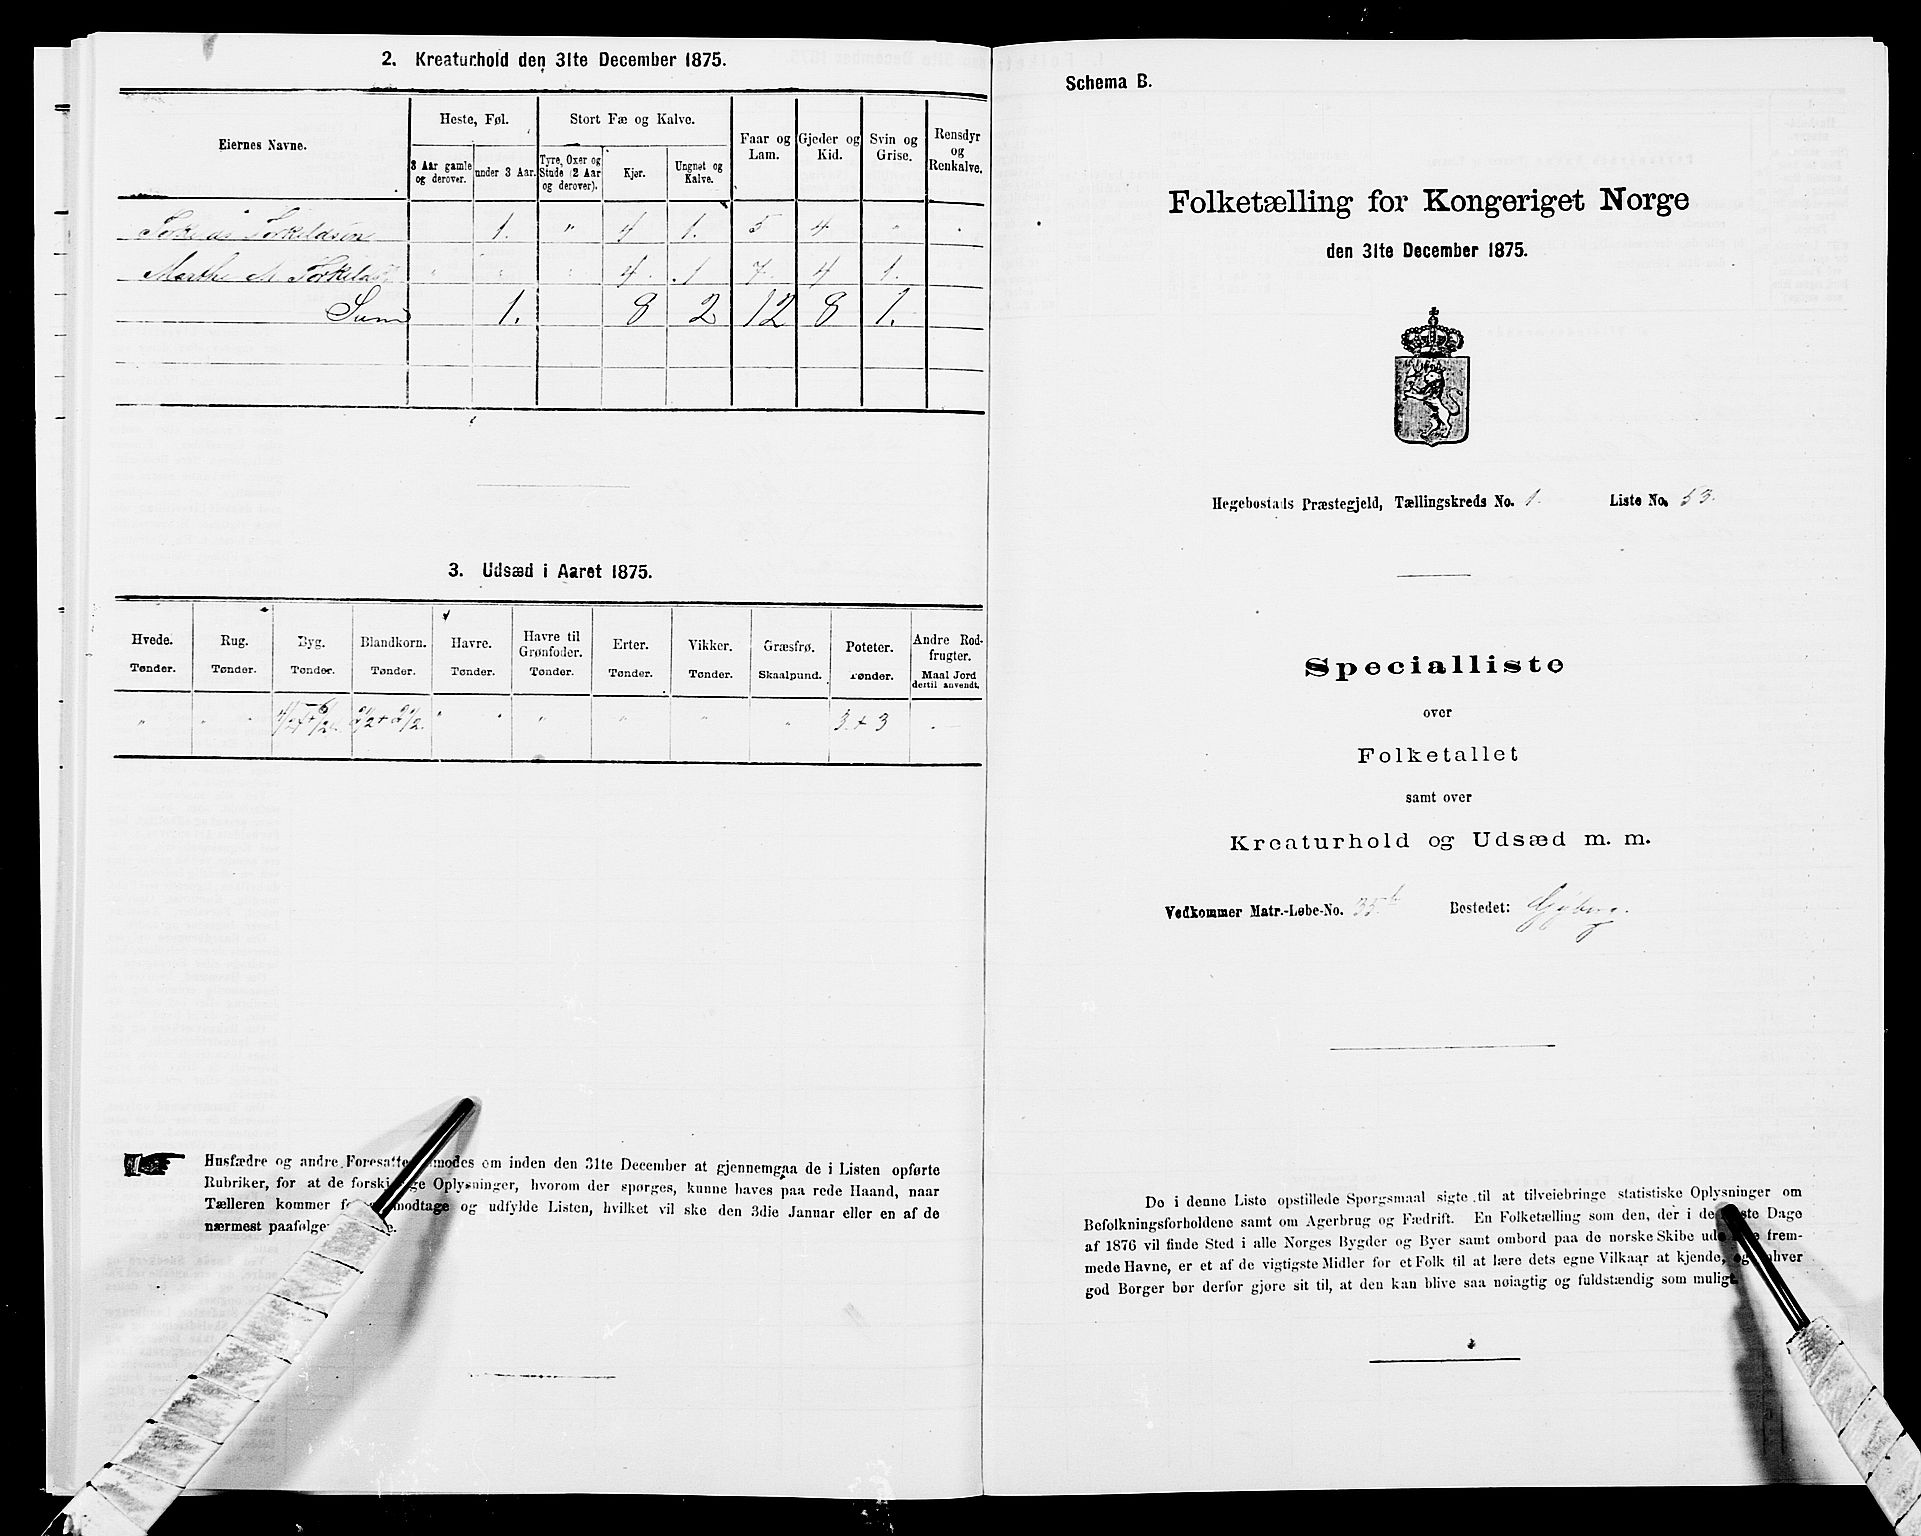 2. Kreaturhold den 31te December 1875.
Eiernes Navne.
Heste, Føl.
3 Aar gamle og derover.
under 3 Aar.
Stort Fæ og Kalve.
Tyre, Oxer og Stude (2 Aar og derover).
Kjør.
Ungnøt og Kalve.
Faar og Lam.
Gjeder og Kid.
Svin og Grise.
Rensdyr og Renkalve.
Torkildsen 1. " 4 1. 5 4 "
Marthe M Torkelds " " " 4. 1 7. 4 1.
Sum 1. 8 2 12 8 1.
3. Udsæd i Aaret 1875.
Hvede. Rug. Byg. Blandkorn. Havre. Havre til Grønfoder. Erter. Vikker. Græsfrø. Poteter. Andre Rodfrugter.
Tønder. Tønder. Tønder. Tønder. Tønder. Tønder. Tønder. Tønder. Skaalpund. Tønder. Maal Jord dertil anvendt.
" " " " " " " " 3 + 3
Husfædre og andre Foresatte modes om inden den 31te December at gjennemgaa de i Listen opførte
Rubriker, for at de forskj ge Oplysninger, hvorom der spørges, kunne haves paa rede Haand, naar
Tælleren kommer fo modtage og udfylde Listen, hvilket vil ske den 3die Januar eller en af de
nærmest paafølge e.
Schema B.
Folketælling for Kongeriget Norge
den 31te December 1875.
Hegebostads Præstegjeld, Tællingskreds No. 1. Liste No. 53.
Specialliste
over
Folketallet
samt over
Kreaturhold og Udsæd m. m.
Vedkommer Matr.-Løbe-No. 35 b Bostedet:
De i denne Liste opstillede Spørgsmaal sigte til at tilveiebringe statistiske Oplysninger om
Befolkningsforholdene samt om Agerbrug og Fædrift. En Folketælling som den, der i de ste Dage
af 1876 vil finde Sted i alle Norges Bygder og Byer samt ombord paa de norske Skibe ude frem-
mede Havne, er et af de vigtigste Midler for et Folk til at lære dets egne Vilkaar at kjende, og nhver
god Borger bør derfor gjøre sit til, at den kan blive saa nøiagtig og fuldstændig som muligt.